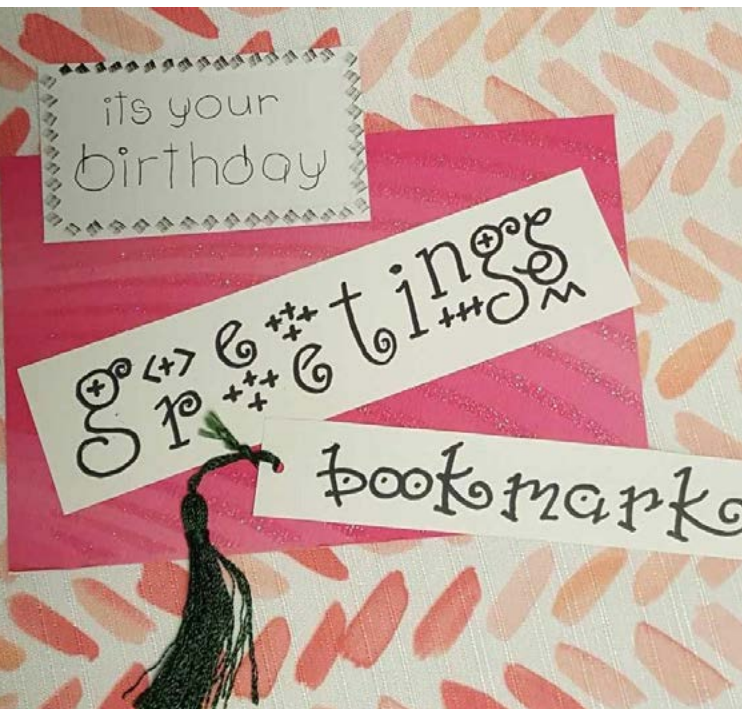 its your
birthday
greetings
bookmark